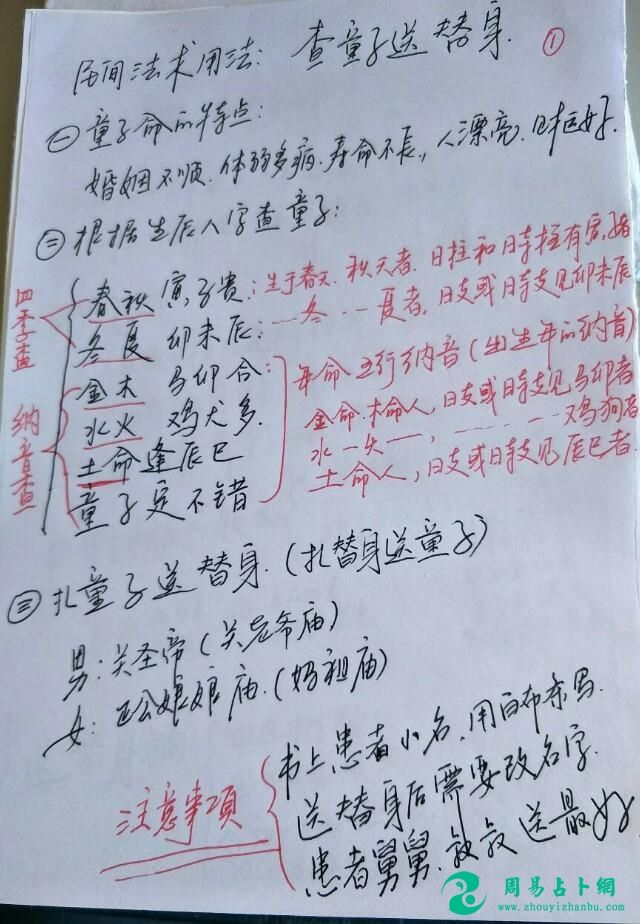 民间法术用法: 查童子送替身. ①
㊀ 童子命的特点:
婚姻不顺. 体弱多病. 寿命不长, 人漂亮. 日柱好.
㊁ 根据生辰八字查童子:
四季查
春秋 寅子贵: 生于春天. 秋天者. 日柱和时柱有寅,子者
冬夏 卯未辰: 一冬一一夏者, 日支或日时支见卯未辰
纳音查
金木 马卯合:
水火 鸡犬多.
土命逢辰巳
童子定不错
年命五行纳音(出生年的纳音)
金命.木命人, 日支或日时支见马卯者
水一火一一, ------- 鸡狗者
土命人, 日支或日时支见辰巳者.
㊂ 扎童子送替身. (扎替身送童子)
男: 关圣帝 (关老爷庙)
女: 娘娘庙. (妈祖庙)
注意事項
书上患者小名. 用白布条写.
送替身后需要改名字.
患者舅舅. 叔叔送最好
周易占卜網
www.zhouyizhanbu.com